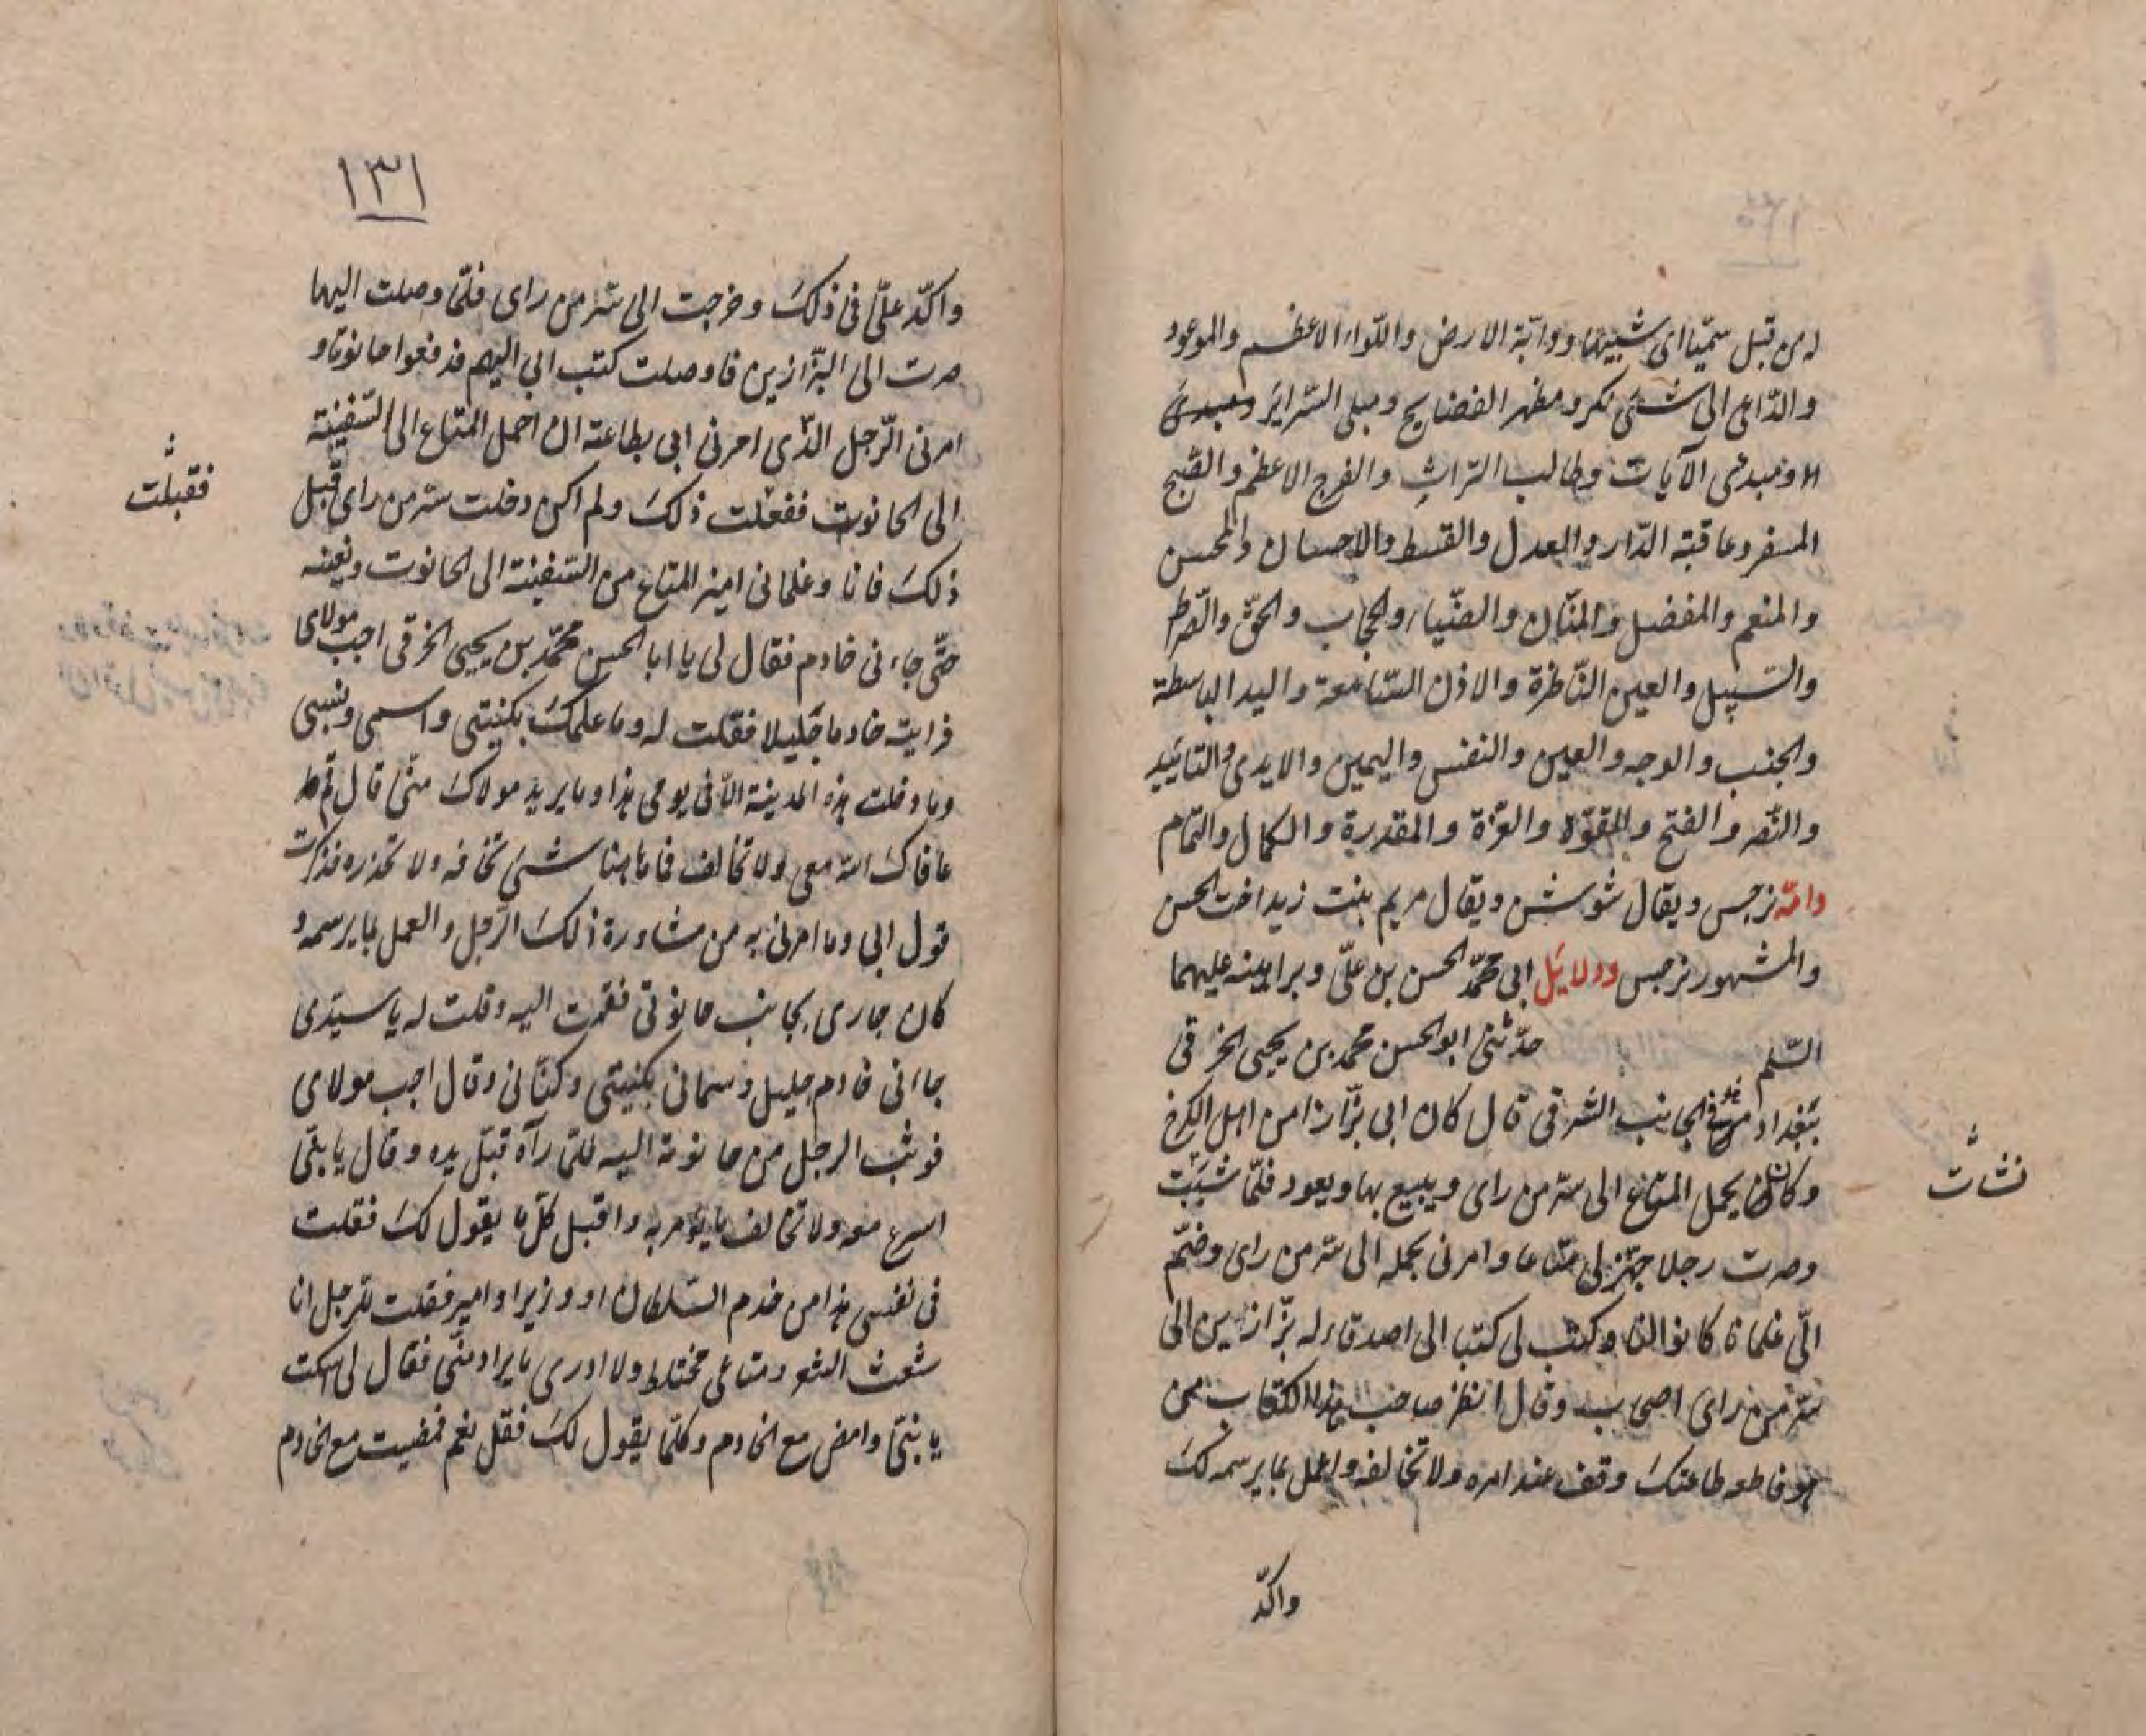 له من قبل سمّيا اى شبيها ودابّة الارض واللّواء الاعظم والموعود
والدّاعى الى شىء نكر ومظهر الفضايح ومبلى السّراير ومبدى
ومبدئ الآيات وطالب التراث والفرج الاعظم والصّبح
المسفر وعاقبة الدّار والعدل والقسط والاحسان والمحسن
والمنعم والمفضل والمنّان والضّياء والحجاب والحقّ والصّراط
والسّبيل والعين النّاظرة والاذن السّامعة واليد الباسطة
والجنب والوجه والعين والنفس واليمين والايدى والتاييد
والنّصر والفتح والقوّة والعزّة والمقدرة والكمال والتمام
وامّه نرجس ويقال سوسن ويقال مريم بنت زيد اخت الحسن
والمشهور نرجس ودلايل ابى محمّد الحسن بن علىّ وبراهينه عليهما
السّلم حدّثنى ابو الحسن محمد بن يحيى الخرقى
ببغداد فى الجانب الشرقى قال كان ابى بزّازا من اهل الكرخ
وكان يحمل المتاع الى سرّ من راى ويبيع بها ويعود فلمّا شببت
نشات
وصرت رجلا جهّز لى متاعا وامرنى بحمله الى سرّ من راى وضمّ
الىّ غلمانا كانوا لنا وكتب لى كتبا الى اصدقاء له بزّازين الى
سرّ من راى وقال انظر صاحب هذا الكتاب من
هو فاطعه طاعتك وقف عند امره ولا تخالفه واعمل بما يرسمه لك
واكّد
١٣١
واكّد علىّ فى ذلك وخرجت الى سرّ من راى فلمّا وصلت اليها
صرت الى البزّازين فاوصلت كتب ابى اليهم فدفعوا حانوتا و
امرنى الرّجل الّذى امرنى ابى بطاعته ان احمل المتاع الى السّفينة
الى الحانوت ففعلت ذلك ولم اكن دخلت سرّ من راى قبل
فقبلت
ذلك فانا وغلمانى اميز المتاع من السّفينة الى الحانوت ونعينه
حتّى جاءنى خادم فقال لى يا ابا الحسن محمّد بن يحيى الخرقى اجب مولاى
فرايت خادما جليلا فقلت له وما علمك بكنيتى واسمى ونسبى
وما دخلت هذه المدينة الّا فى يومى هذا وما يريد مولاك منّى قال قم
عافاك الله معى ولا تخالف فما هنا شىء تخافه ولا تحذره فذكرت
قول ابى وما امرنى به من مشاورة ذلك الرّجل والعمل بما يرسمه و
كان جارى بجانب حانوتى فقمت اليه وقلت له يا سيّدى
جاانى خادم جليل وسمانى بكنيتى وكنّانى وقال اجب مولاى
فوثب الرجل من حانوته اليه فلمّا رآه قبّل يده وقال يا بنىّ
اسرع معه ولا تخالف ما يؤمر به واقبل كلّ ما يقول لك فقلت
فى نفسى هذا من خدم السّلطان او وزير او امير فقلت للرجل انا
شعث الشعر ومتاعى مختلط ولا ادرى ما يراد منّى فقال لى اسكت
يا بنىّ وامض مع الخادم وكلّما يقول لك فقل نعم فمضيت مع الخادم